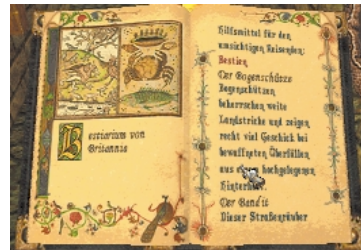 Bestiarium von
Britannia
Hilfsmittel für den
umsichtigen Reisenden:
Bestien
Der Bogenschütze
Bogenschützen
beherrschen weite
Landstriche und zeigen
recht viel Geschick bei
bewaffneten Überfällen
aus hochgelegenen
Der Bandit
Dieser Straßenräuber